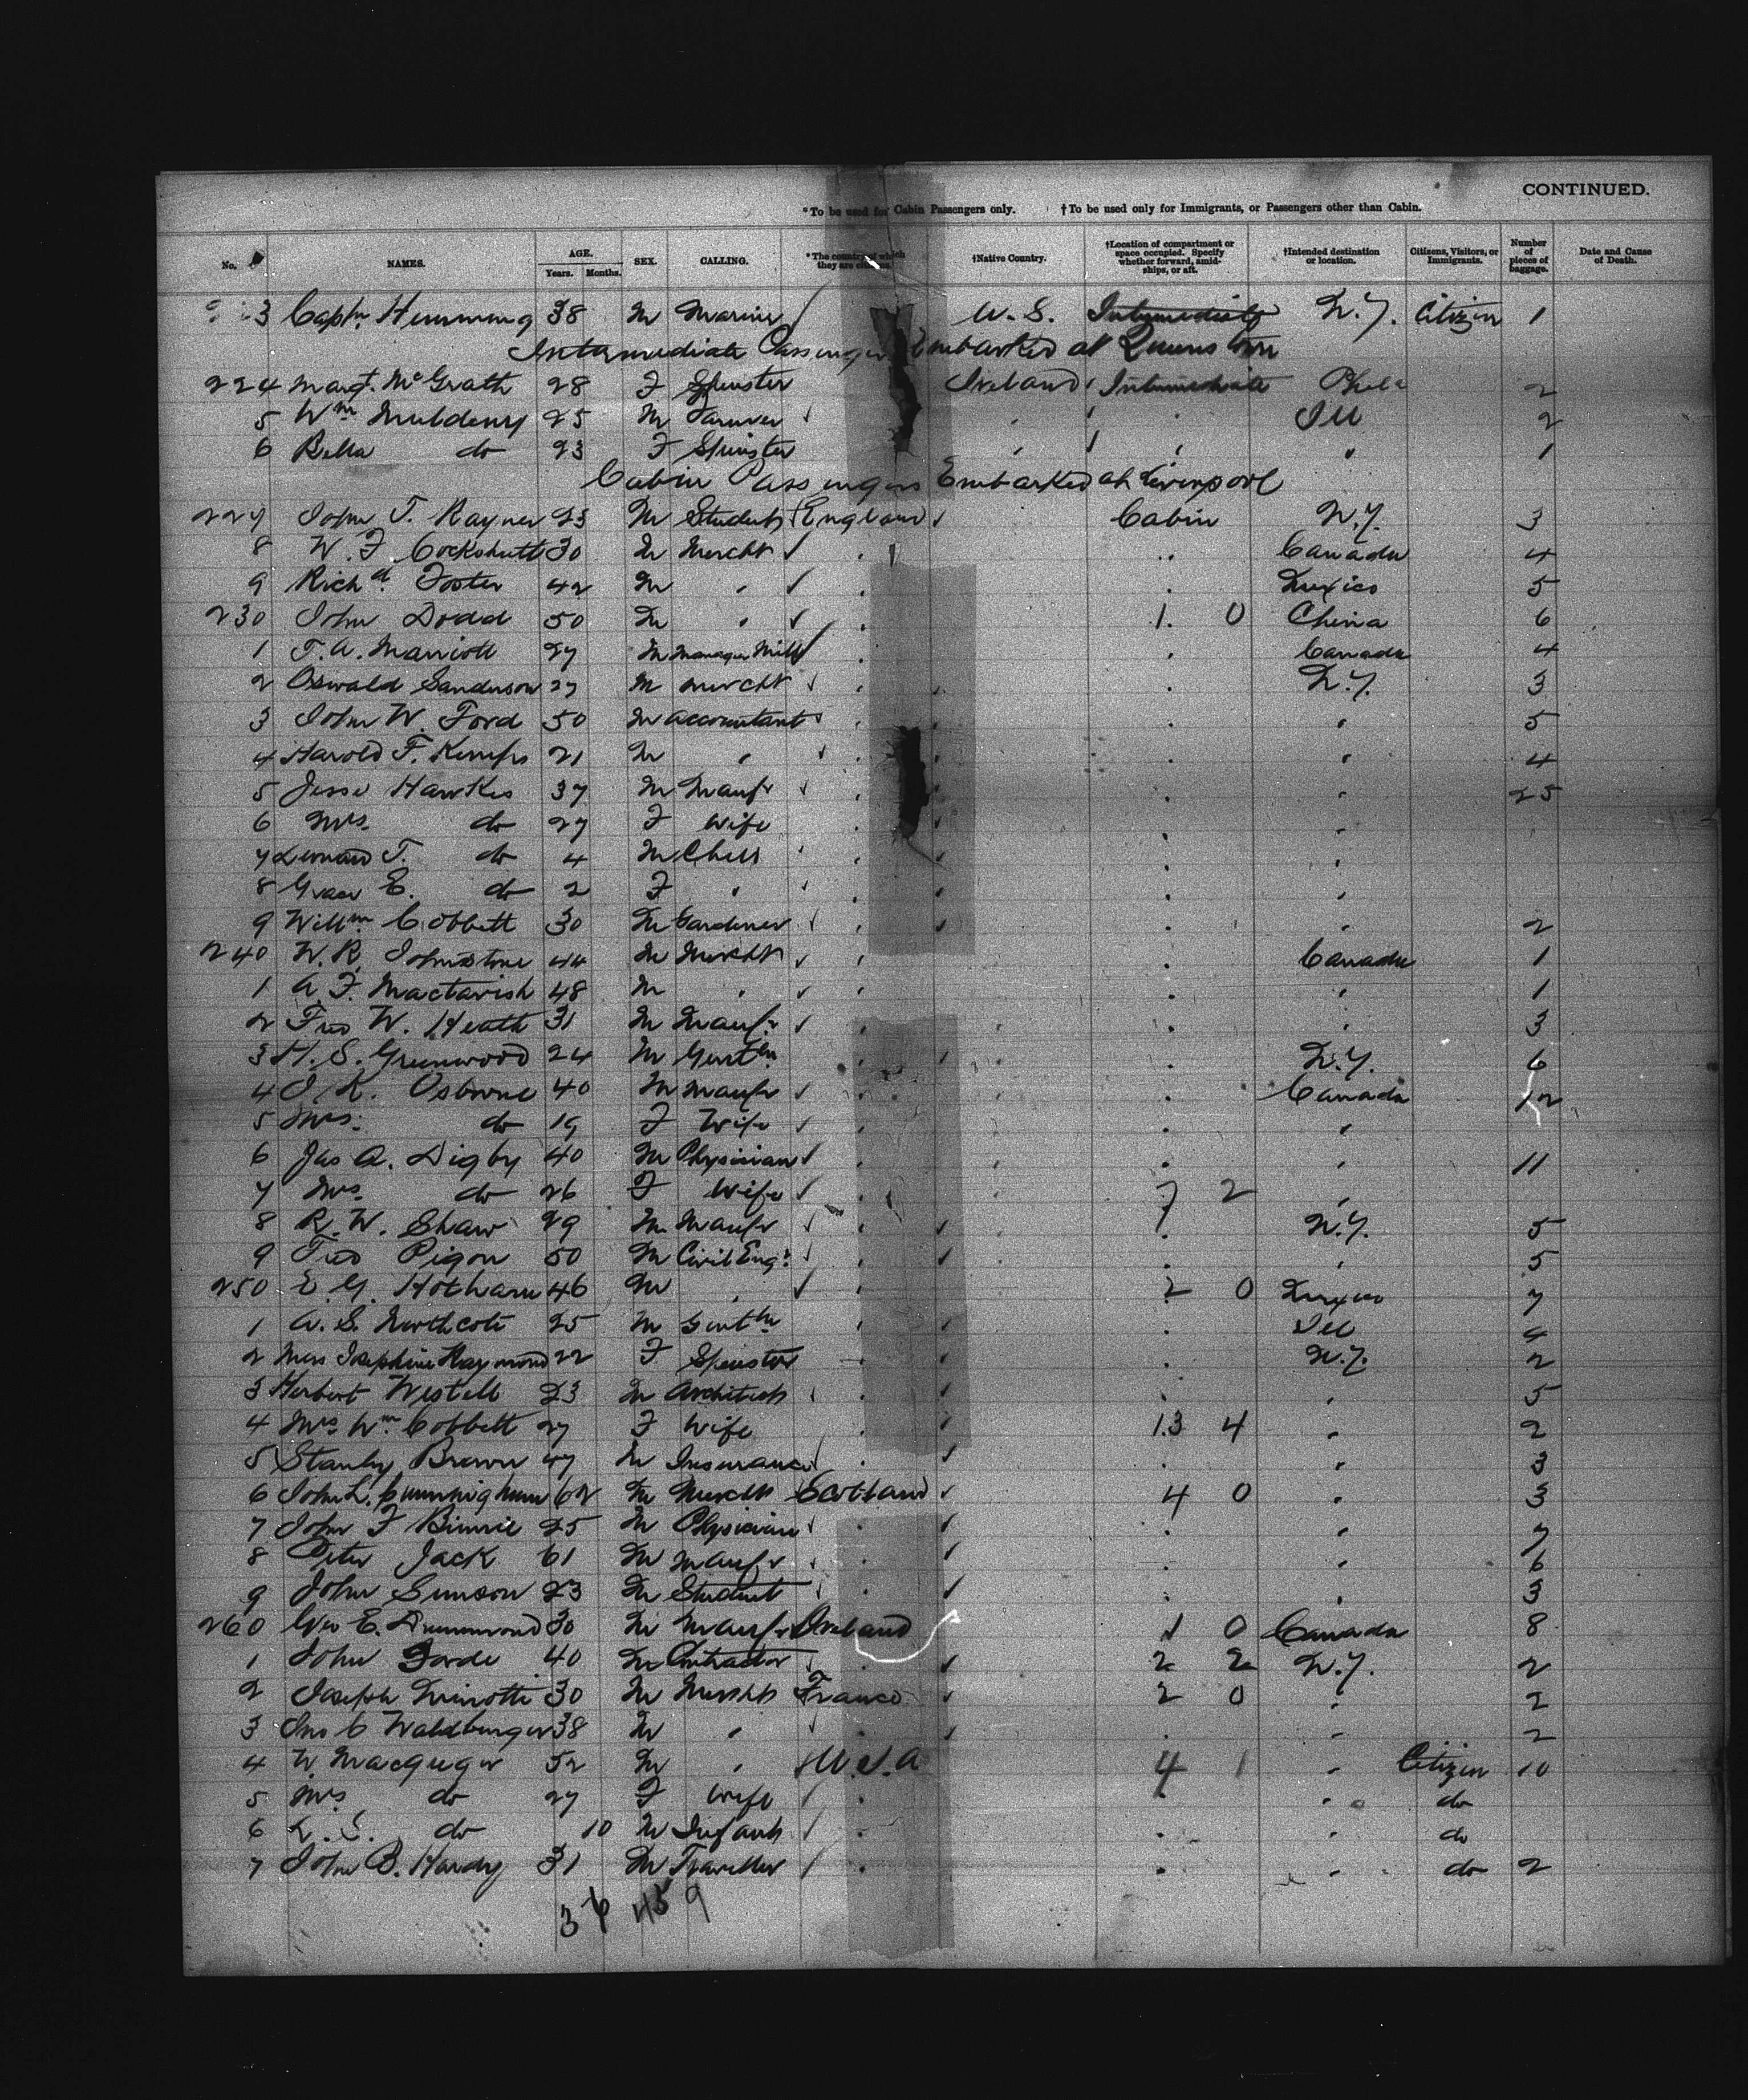 CONTINUED.
*To be used for Cabin Passengers only. †To be used only for Immigrants, or Passengers other than Cabin.
No. NAMES. AGE. Years. Months. SEX. CALLING. *The country of which they are citizens. †Native Country. †Location of compartment or space occupied. Specify whether forward, amidships, or aft. †Intended destination or location. Citizens, Visitors, or Immigrants. Number of pieces of baggage. Date and Cause of Death.
3 Captn Hemming 38 M Marine U.S. Intermediate N.Y. Citizen 1
Intermediate Passengers Embarked at Queenstown
224 Margt. McGrath 28 F Spinster Ireland Intermediate Phila 2
5 Wm 25 M Farmer Ill 2
6 Bella do 23 F Spinster 1
Cabin Passengers Embarked at Liverpool
227 John T. Rayner 23 M Student England Cabin N.Y. 3
8 W. F. Cockshutt 30 M Mercht Canada 4
9 Richd. Foster 42 M Mexico 5
230 John Dodd 50 M 1. 0 China 6
1 T. A. Marriott 27 M Manager Mill Canada 4
2 Oswald Sanderson 27 M Mercht N.Y. 3
3 John W. Ford 50 M Accountant 5
4 Harold F. Kemp 21 M 4
5 Jesse Hawkes 37 M Manfr 25
6 Mrs. do 27 F Wife
7 T. do 4 M Child
8 Grace E. do 2 F
9 Willm Cobbett 30 M Gardener 2
240 W. R. Johnstone 44 M Mercht Canada 1
1 A. F. Mactavish 48 M 1
2 W. Heath 31 M Manfr 3
3 H. S. Greenwood 24 M Gentln N.Y. 6
4 J. K. Osborne 40 M Manfr Canada 12
5 Mrs. do 19 F Wife
6 Jas A. Digby 40 M Physician 11
7 Mrs. do 26 F Wife 7 2
8 R. W. Shaw 29 M Manfr N.Y. 5
9 Pigon 50 M Civil Engr 5
250 E. G. Hotham 46 M 2 0 Mexico 7
1 A. S. Northcote 25 M Gentln Ill 4
2 Miss Josephine Raymond 22 F Spinster N.Y. 2
3 Herbert Westell 23 M Architect 5
4 Mrs Wm Cobbett 27 F Wife 13 4 2
5 Stanley Brown 47 M Insurance 3
6 John L. Cunningham 62 M Mercht Scotland 4 0 3
7 John F Binnie 25 M Physician 7
8 Peter Jack 61 M Manfr 6
9 John Simson 23 M Student 3
260 Geo E. Drummond 30 M Manfr Ireland 1 0 Canada 8
1 John Forde 40 M Contractor 2 2 N.Y. 2
2 Joseph 30 M Mercht France 2 0 2
3 Jno C Waldburger 38 M 2
4 W. Macgregor 52 M U.S.A 4 1 Citizen 10
5 Mrs do 27 F Wife do
6 do 10 M Infant do
7 John B. Hardy 31 M Traveller do 2